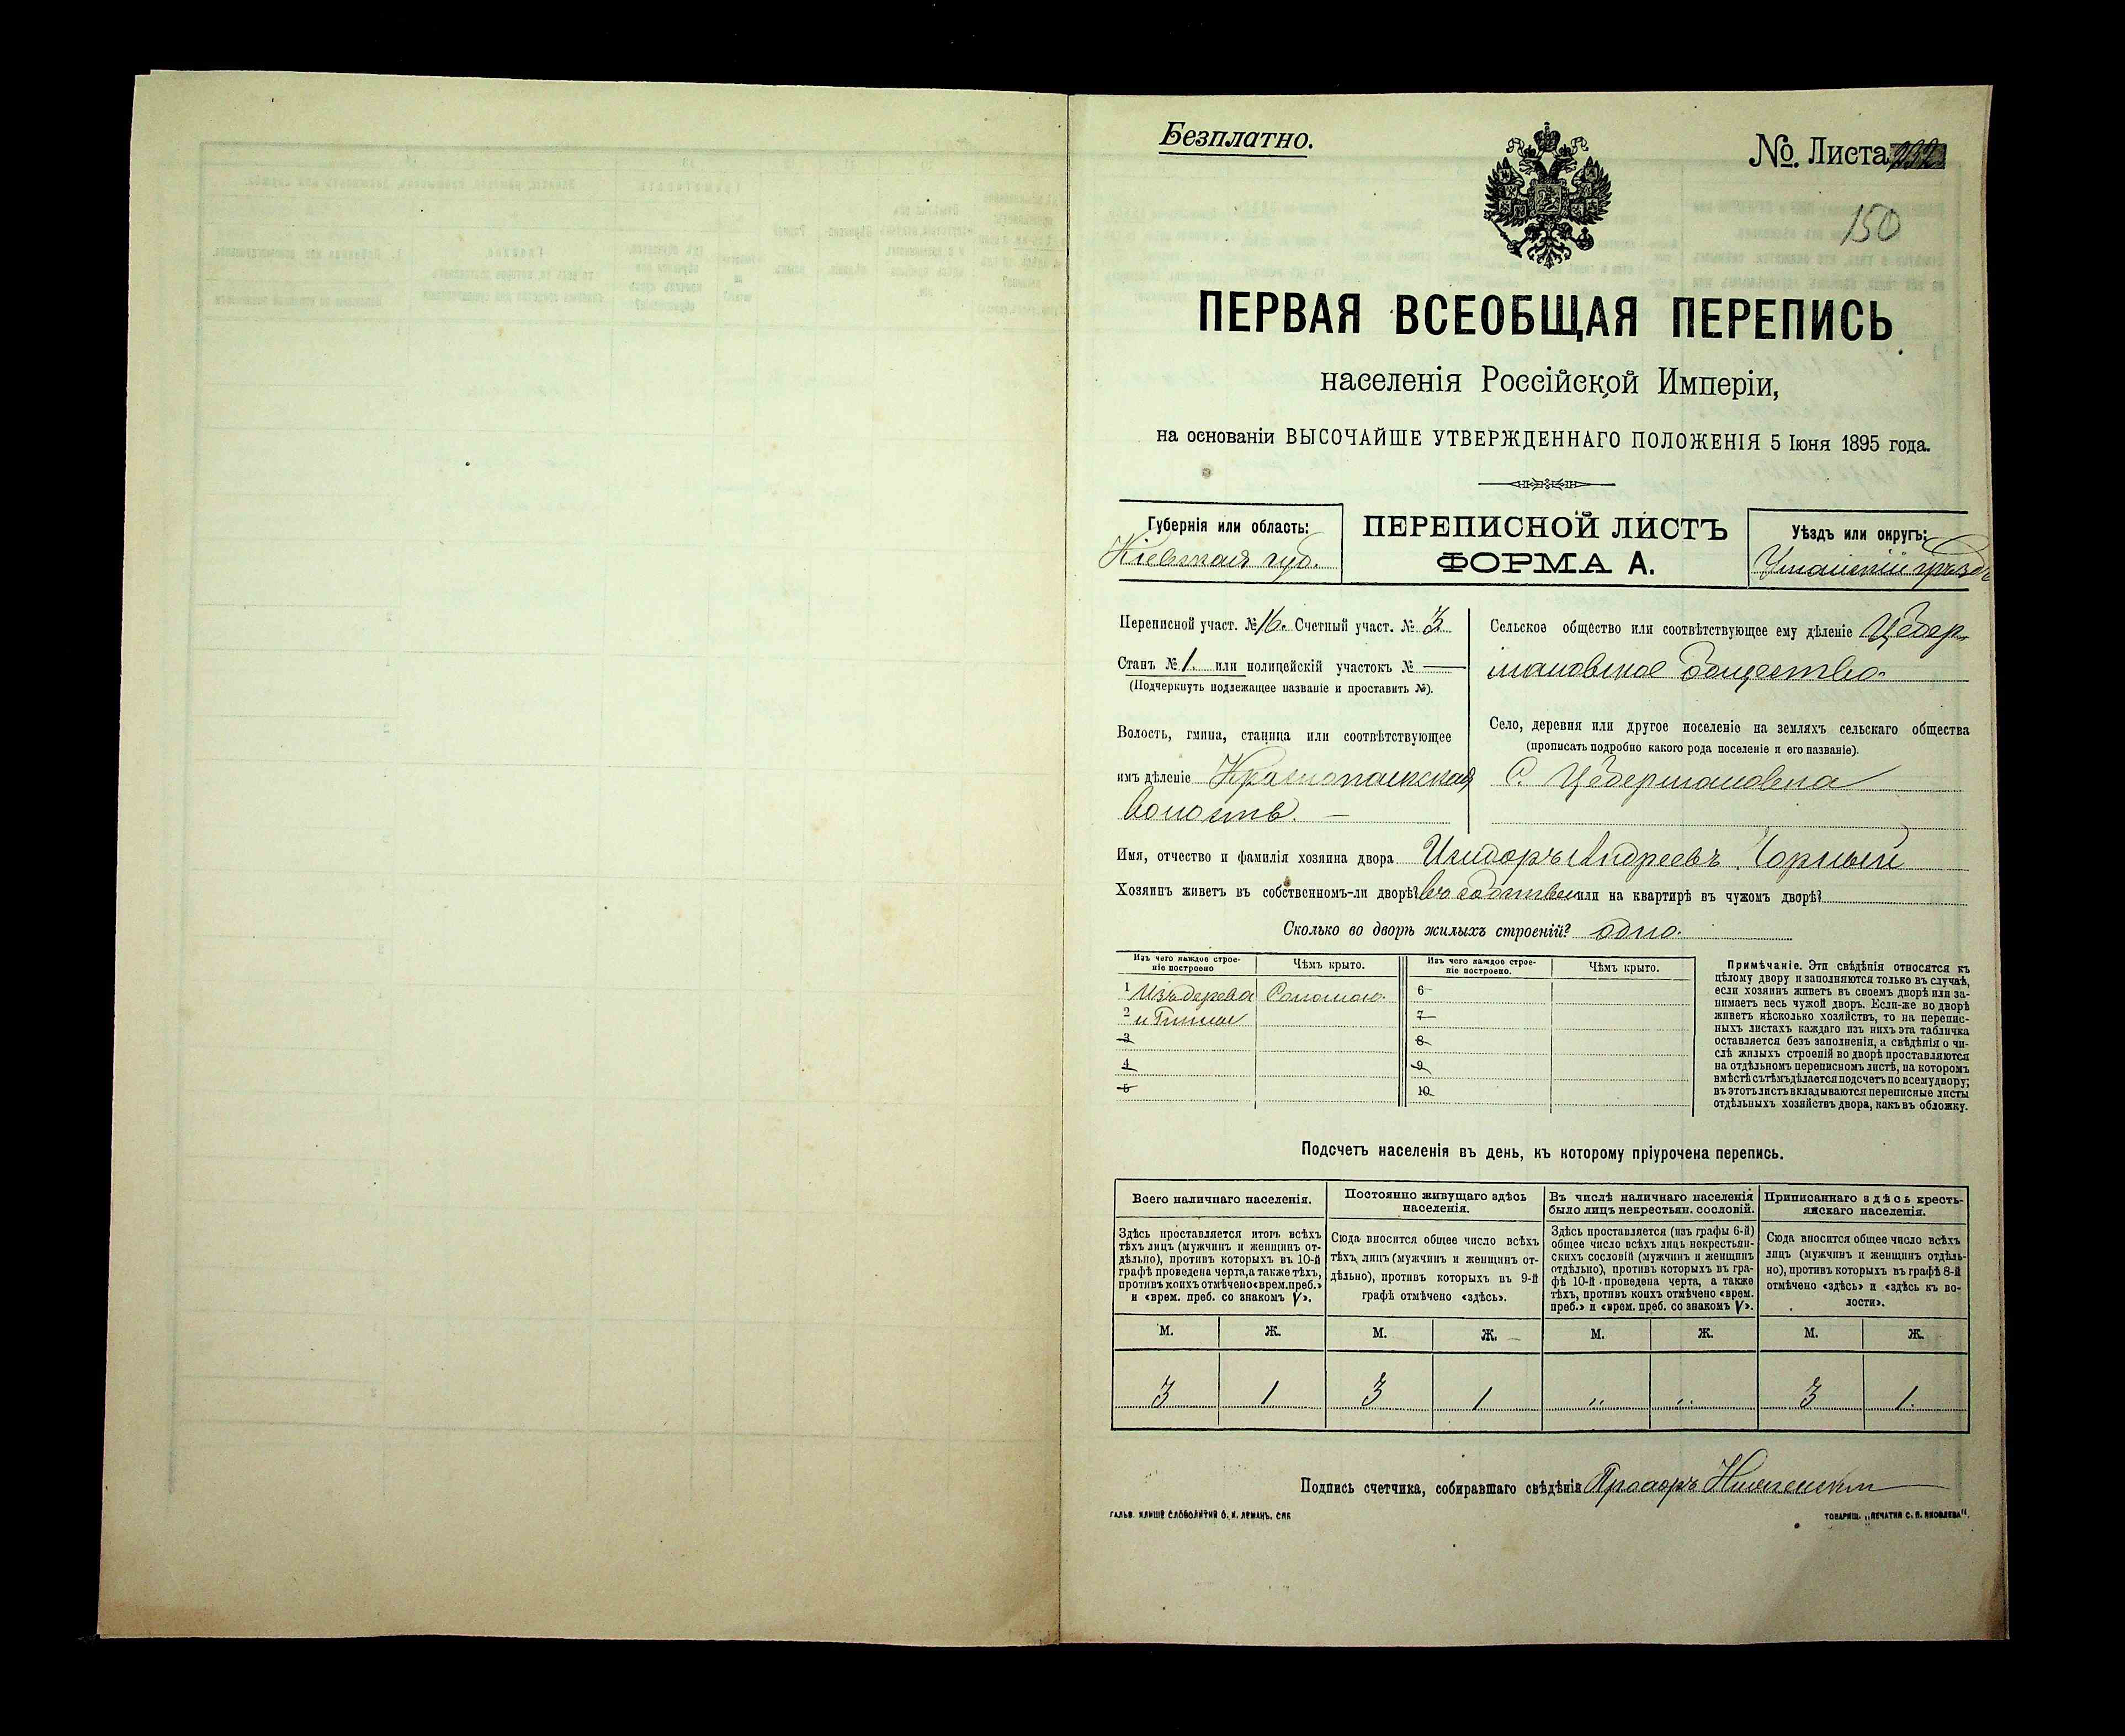 Безплатно.
№. Листа
150
ПЕРВАЯ ВСЕОБЩАЯ ПЕРЕПИСЬ
населенія Россійской Имперіи,
на основаніи ВЫСОЧАЙШЕ УТВЕРЖДЕННАГО ПОЛОЖЕНІЯ 5 Іюня 1895 года.
Губернія или область:
Кіевская губ.
ПЕРЕПИСНОЙ ЛИСТЪ
ФОРМА А.
Уѣздъ или округъ:
Уманскій уѣздъ
Переписной участ. № 16. Счетный участ. № 3
Станъ № 1. или полицейскій участокъ № —
(Подчеркнуть подлежащее названіе и проставить №).
Волость, гмина, станица или соотвѣтствующее
имъ дѣленіе Краснопольская
волость. —
Сельское общество или соотвѣтствующее ему дѣленіе Цебер-
мановское общество.
Село, деревня или другое поселеніе на земляхъ сельскаго общества
(прописать подробно какого рода поселеніе и его названіе).
С. Цебермановка
Имя, отчество и фамилія хозяина двора Исидоръ Андреевъ Чорный
Хозяинъ живетъ въ собственномъ-ли дворѣ? въ собствен или на квартирѣ въ чужомъ дворѣ?
Сколько во дворѣ жилыхъ строеній? одно.
Изъ чего каждое строе-
ніе построено
Чѣмъ крыто.
Изъ чего каждое строе-
ніе построено.
Чѣмъ крыто.
1 Изъ дерева Соломою. 6
2 и Глины 7
3 8
4 9
5 10
Примѣчаніе. Эти свѣдѣнія относятся къ
цѣлому двору и заполняются только въ случаѣ,
если хозяинъ живетъ въ своемъ дворѣ или за-
нимаетъ весь чужой дворъ. Если-же во дворѣ
живетъ нѣсколько хозяйствъ, то на перепис-
ныхъ листахъ каждаго изъ нихъ эта табличка
оставляется безъ заполненія, а свѣдѣнія о чи-
слѣ жилыхъ строеній во дворѣ проставляются
на отдѣльномъ переписномъ листѣ, на которомъ
вмѣстѣ съ тѣмъ дѣлается подсчетъ по всему двору;
въ этотъ листъ вкладываются переписные листы
отдѣльныхъ хозяйствъ двора, какъ въ обложку.
Подсчетъ населенія въ день, къ которому пріурочена перепись.
Всего наличнаго населенія.
Здѣсь проставляется итогъ всѣхъ
тѣхъ лицъ (мужчинъ и женщинъ от-
дѣльно), противъ которыхъ въ 10-й
графѣ проведена черта, а также тѣхъ,
противъ коихъ отмѣчено «врем. преб.»
и «врем. преб. со знакомъ V».
Постоянно живущаго здѣсь
населенія.
Сюда вносится общее число всѣхъ
тѣхъ лицъ (мужчинъ и женщинъ от-
дѣльно), противъ которыхъ въ 9-й
графѣ отмѣчено «здѣсь».
Въ числѣ наличнаго населенія
было лицъ некрестьян. сословій.
Здѣсь проставляется (изъ графы 6-й)
общее число всѣхъ лицъ некрестьян-
скихъ сословій (мужчинъ и женщинъ
отдѣльно), противъ которыхъ въ гра-
фѣ 10-й проведена черта, а также
тѣхъ, противъ коихъ отмѣчено «врем.
преб.» и «врем. преб. со знакомъ V».
Приписаннаго здѣсь кресть-
янскаго населенія.
Сюда вносится общее число всѣхъ
лицъ (мужчинъ и женщинъ отдѣль-
но), противъ которыхъ въ графѣ 8-й
отмѣчено «здѣсь» и «здѣсь къ во-
лости».
М. Ж. М. Ж. М. Ж. М. Ж.
3 1 3 1 „ „ 3 1.
Подпись счетчика, собиравшаго свѣдѣнія Прохоръ
ГАЛЬВ. КЛИШЕ СЛОВОЛИТНИ О. И. ЛЕМАНЪ, СПБ
ТОВАРИЩ. „ПЕЧАТНЯ С. П. ЯКОВЛЕВА".